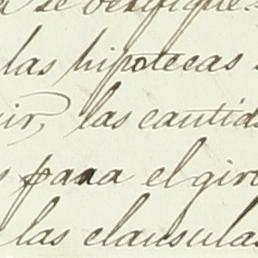 se verifique
las hipotecas
las cantid
para el giro
las clausulas